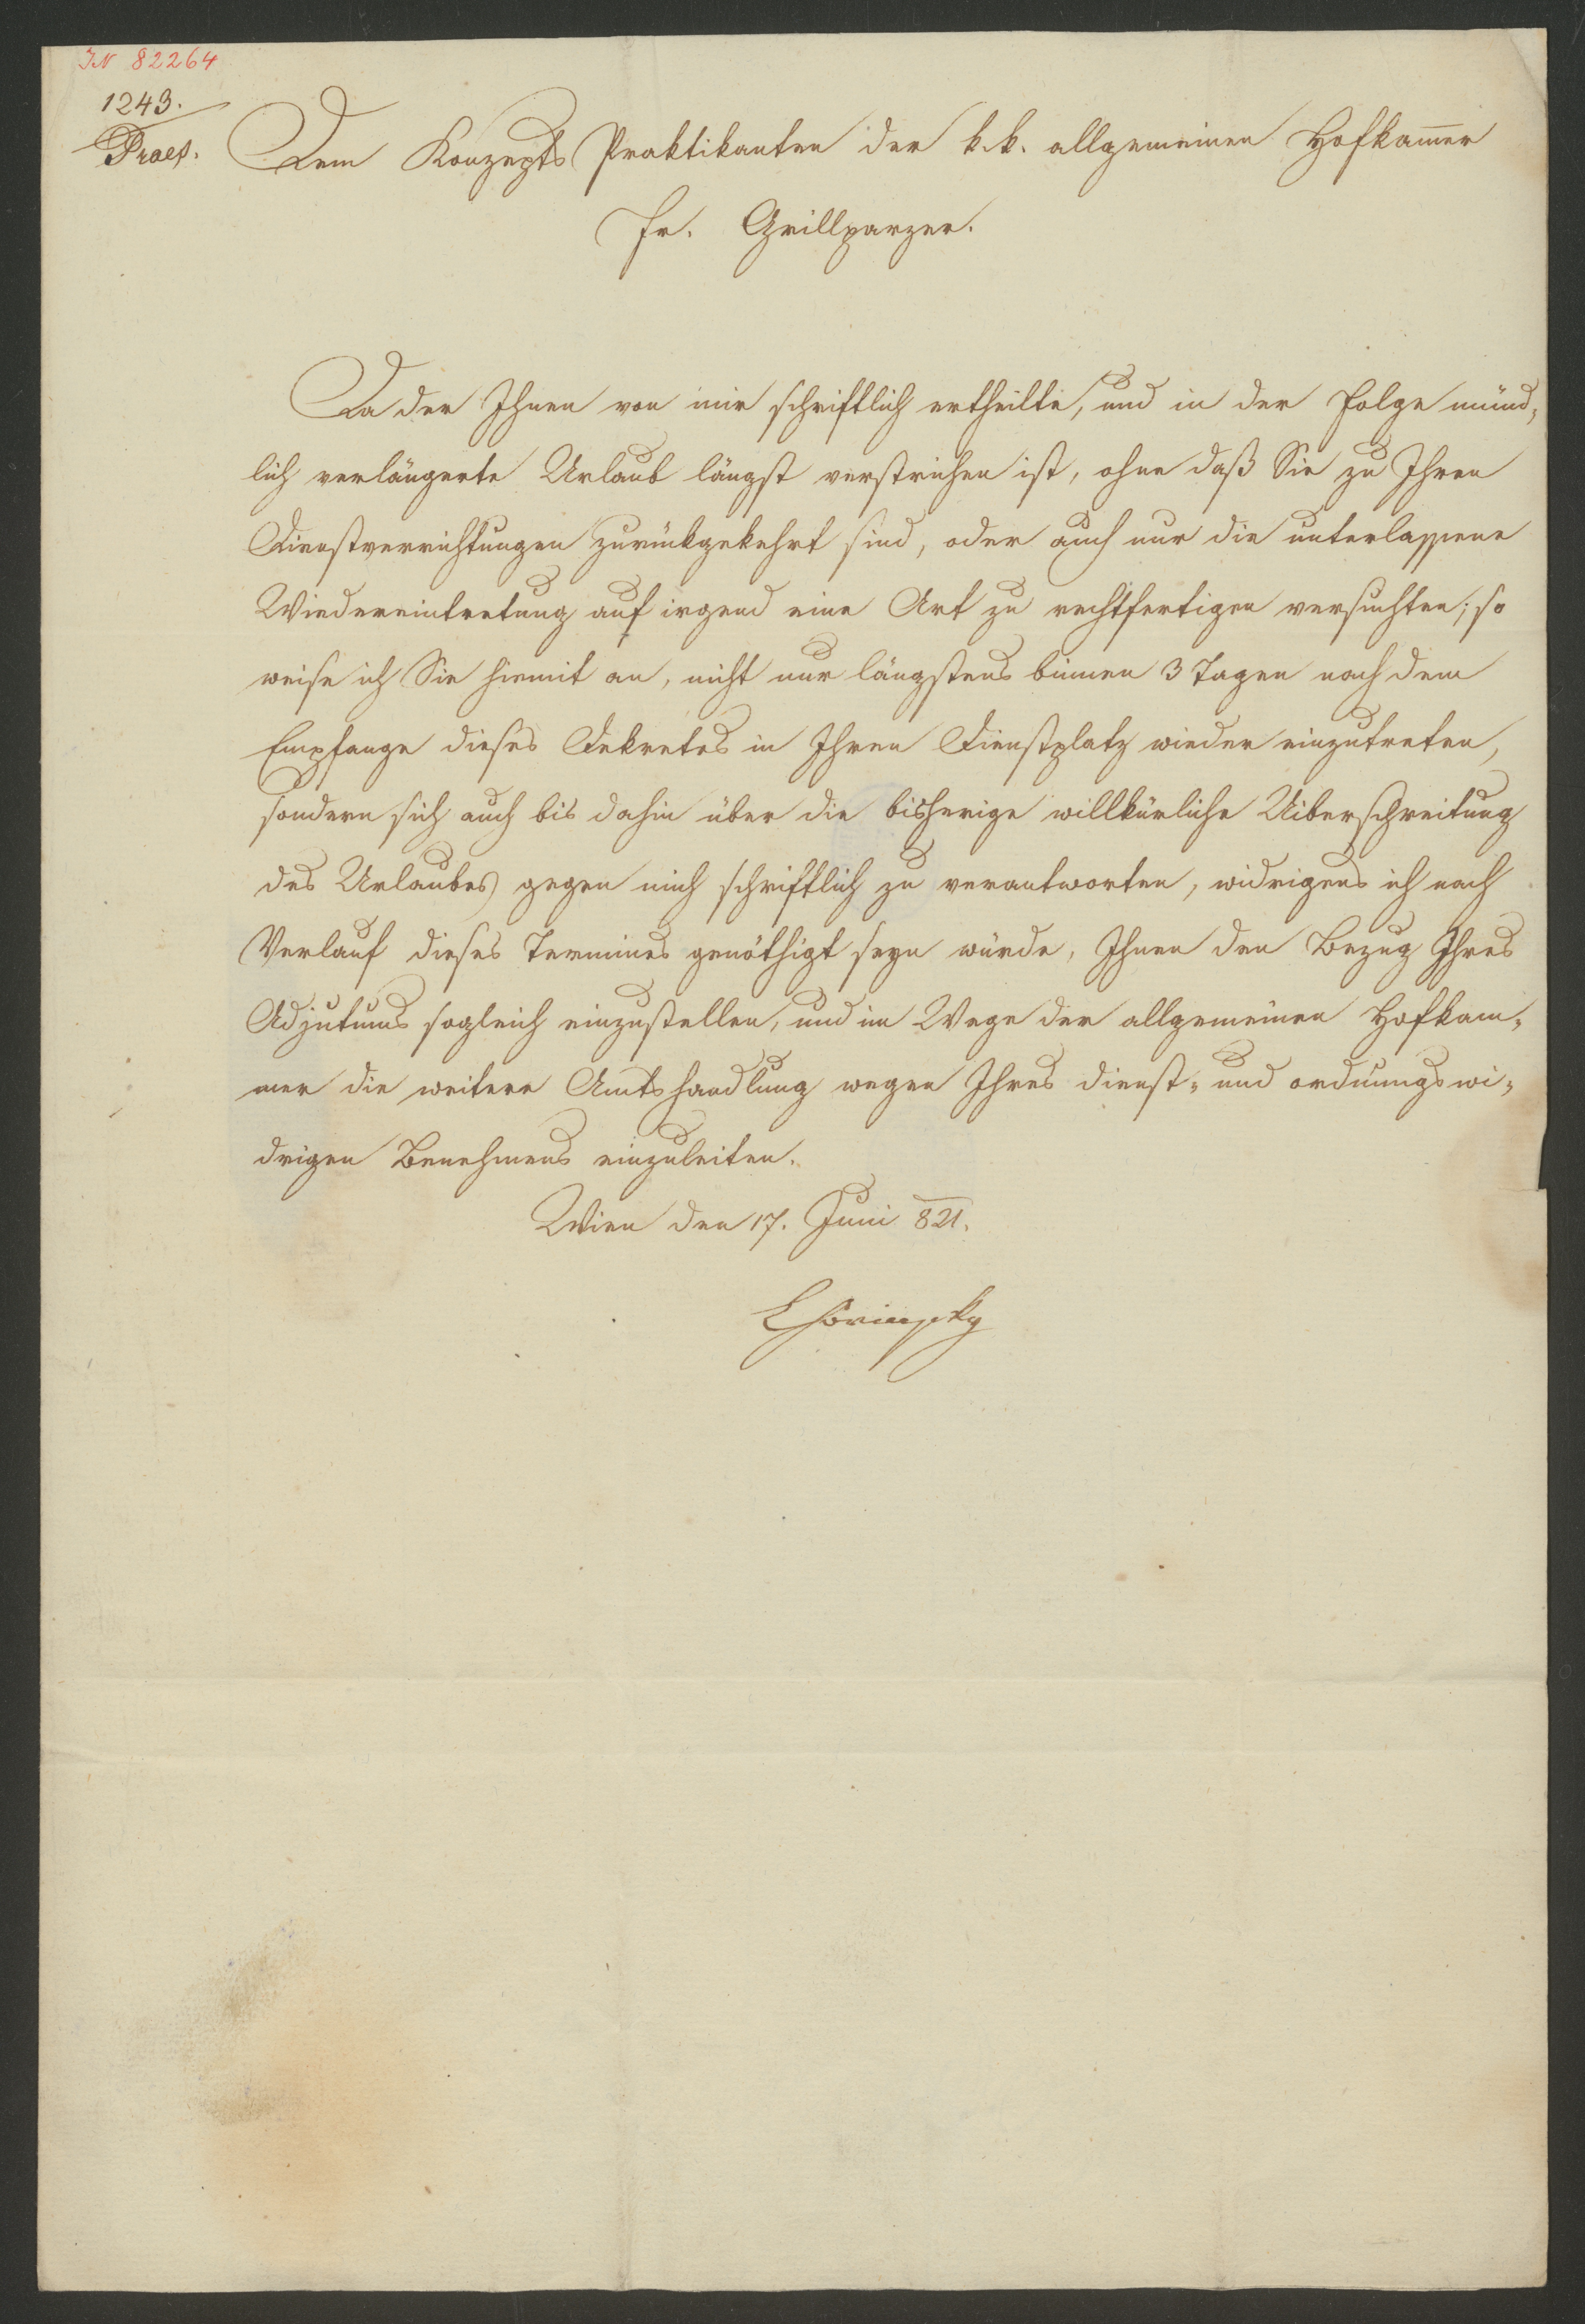 IN 82264
1243.
Praes.
Dem Konzepts Praktikanten der k. k. allgemeinen Hofkam̅er
Fr. Grillparzer.
Da der Ihnen von mir schriftlich ertheilte, und in der Folge münd-
lich verlängerte Urlaub längst verstrichen ist, ohne daß Sie zu Ihren
Dienstverrichtungen zurückgekehrt sind, oder auch nur die unterlassene
Wiedereintretung auf irgend eine Art zu rechtfertigen versuchten; so
weise ich Sie hiemit an, nicht nur längstens binnen 3 Tagen nach dem
Empfange dieses Dekretes in Ihren Dienstplatz wieder einzutreten,
sondern sich auch bis dahin über die bisherige willkürliche Uiberschreitung
des Urlaubes gegen mich schriftlich zu verantworten, widrigens ich nach
Verlauf dieses Termines genöthigt seyn würde, Ihnen den Bezug Ihres
Adjutums sogleich einzustellen, und im Wege der allgemeinen Hofkam-
mer die weitere Amtshandlung wegen Ihres dienst- und ordnungswi-
drigen Benehmens einzuleiten.
Wien den 17. Juni 821.
Chorinsky